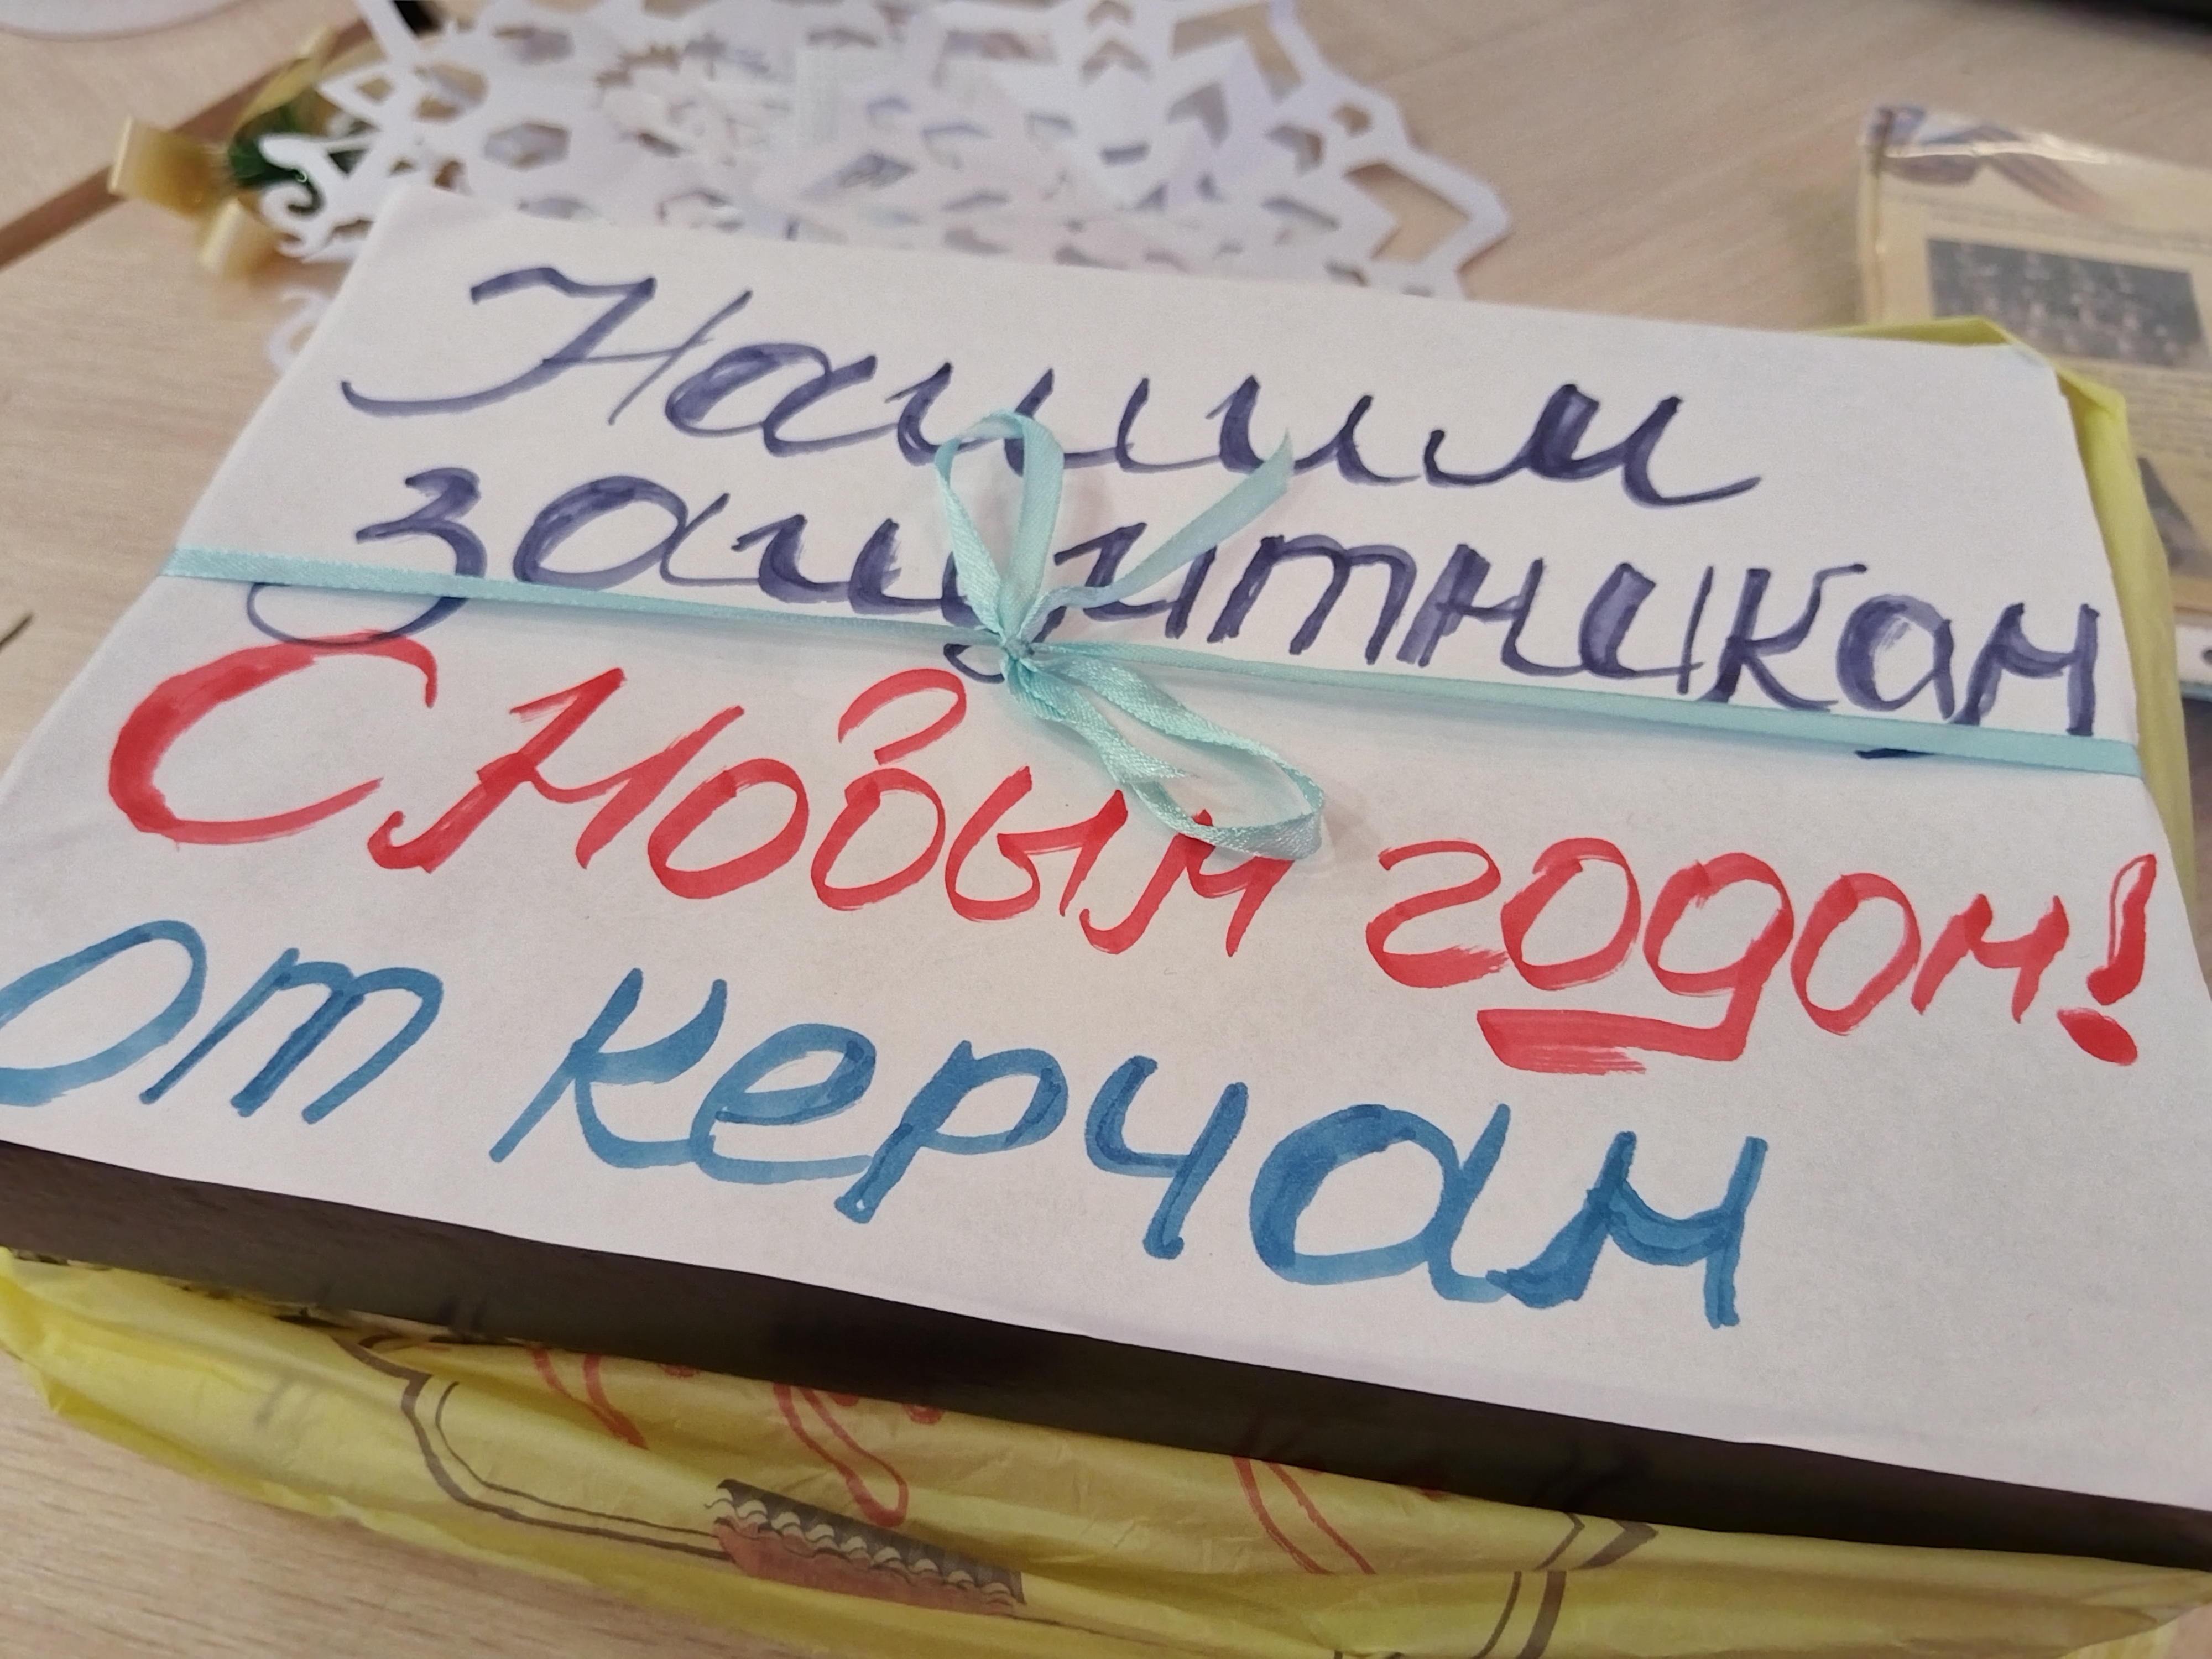 Нашим
защитникам
С Новым годом!
от керчан